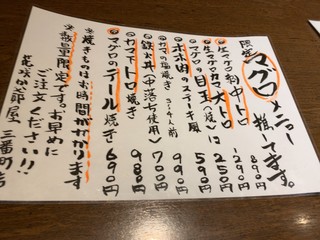 限定マグロメニュー
揃ってます。
生マグロ 中トロ 890円
生マグロカマ大トロ 1290円
マグロの目玉(焼)に 250円
ホホ肉のステーキ風 590円
カマの塩焼き 3~4人前
鉄火丼(中落ち使用) 700円
カマ下トロ焼き 980円
マグロのテール焼き 690円
※焼きものはお時間がかかります
※数量限定です。お早めに
ご注文ください!!
三番町店